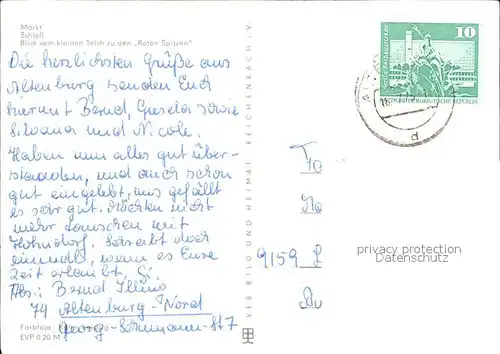 Markt
Schloß
Blick vom kleinen Teich zu den „Roten Spitzen“
Die herzlichsten Grüße aus
Altenburg senden Euch
hiermit Bernd, Gisela sowie
Silvana und Nicole.
Haben nun alles gut über-
standen, und auch schon
gut eingelebt, uns gefällt
es sehr gut. Möchten nicht
mehr tauschen mit
Hohndorf. Schreibt doch
einmal, wenn es Eure
Zeit erlaubt,
Abs.: Bernd
74 Altenburg-Nord
Georg-Schumann-Str 7
Farbfoto
EVP 0,20 M
VEB BILD UND HEIMAT REICHENBACH i. V.
10
DEUTSCHE DEMOKRATISCHE REPUBLIK
d
9159
privacy protection
Datenschutz